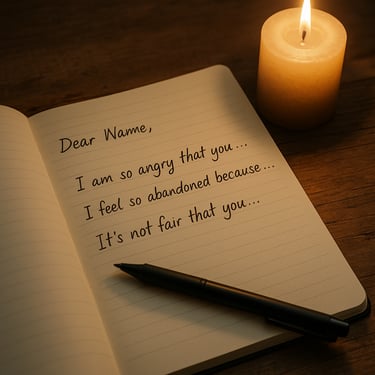 Dear Wame,
I am so angry that you...
I feel so abandoned because...
It's not fair that you...